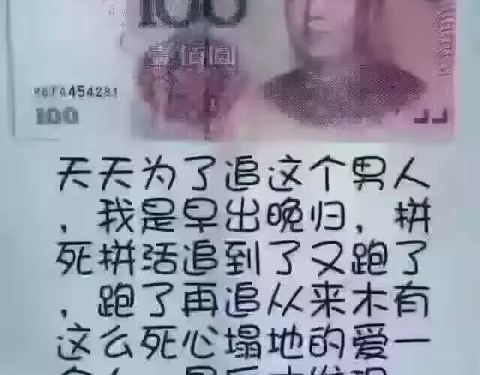 100
壹佰圆
100
天天为了追这个男人
，我是早出晚归，拼
死拼活追到了又跑了
，跑了再追从来木有
这么死心塌地的爱一